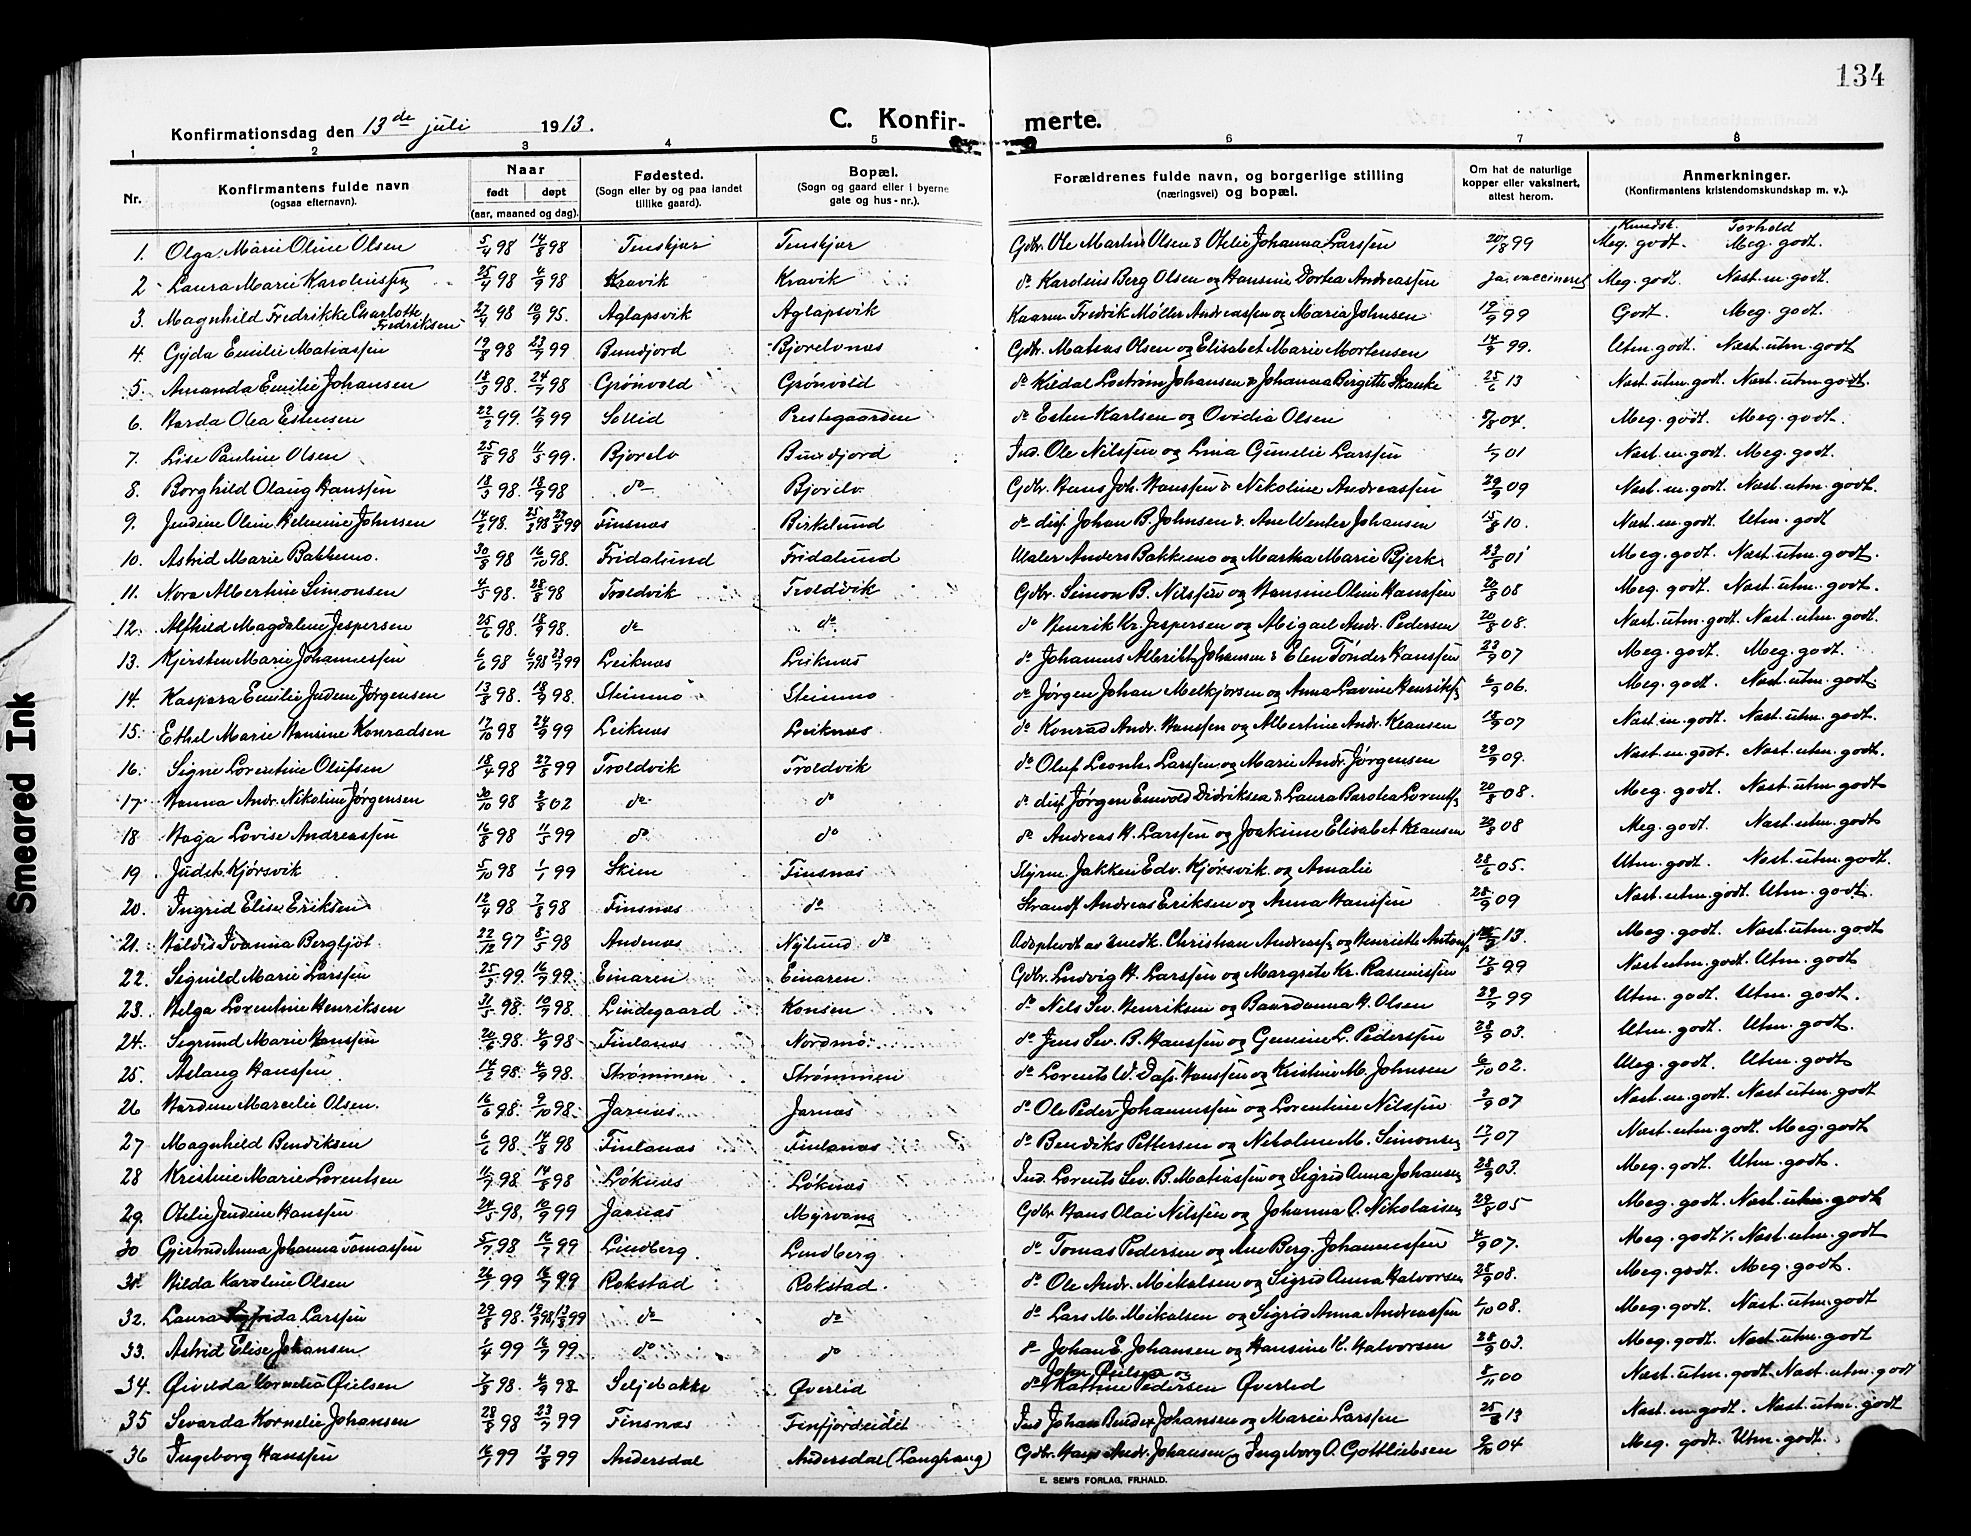 134
Konfirmationsdag den 13de juli 1913.
C. Konfirmerte.
1 2 3 4 5 6 7 8
Nr.
Konfirmantens fulde navn
(ogsaa efternavn).
Naar
født døpt
(aar, maaned og dag).
Fødested.
(Sogn eller by og paa landet
tillike gaard).
Bopæl.
(Sogn og gaard eller i byerne
gate og hus-nr.).
Forældrenes fulde navn, og borgerlige stilling
(næringsvei) og bopæl.
Om hat de naturlige
kopper eller vaksinert,
attest herom.
Anmerkninger.
(Konfirmantens kristendomskundskap m. v.).
Kundsk. Forhold
1. Olga Marie Oline Olsen 5/4 98 14/8 98 Tenskjær Tenskjær Gdbr. Ole Martin Olsen & Otelie Johanna Larssen 20/8 99 Meg. godt. Meg. godt.
2 Laura Marie Karolinssen 25/4 98 4/9 98 Kravik Kravik do Karolius Berg Olsen og Hansine Dortea Andreassen ja. vaccineret Meg. godt. Næst. m. godt.
3. Magnhild Fredrikke Charlotte Fredriksen 27/4 98 10/9 95. Aglapsvik Aglapsvik Kaarm Fredrik Møller Andreassen og Maria Johnsen 19/9 99 Godt. Meg. godt.
4. Gyda Emilie Matiassen 19/8 98 23/7 99 Bundjord Bjorelvnes Gdbr. Matias Olsen og Elisabet Marie Mortensen 14/9 99. Utm. godt. Næst. utm. godt
5. Amanda Emilie Johansen 18/3 98. 24/7 98 Grønvold Grønvold do Kildal Lostrøm Johansen & Johanna Birgitte Skanke 25/6 13 Næst. utm. godt. Næst. utm. godt.
6. Harda Olea Estensen 22/2 99. 17/9 99 Sollid Prestegaarden do Esten Karlsen og Ovidia Olsen 04. Meg. godt. Meg. godt.
7. Lise Pauline Olsen 25/8 98 11/5 99. Bjorelv Bundjord Ind. Ole Nilssen og Lina Gunelie Larssen 01 Næst. m. godt. Meg. godt.
8. Borghild Olaug Hanssen 18/3 98. 18/9 98 do Bjorelv Gdbr. Hans Joh. Hanssen & Nikoline Andreassen 29/9 09 Næst. m. godt. Næst. utm. godt.
9. Jendine Oline Helmine Johnsen 14/2 98. 25/3 98 27/8 99 Finsnæs Birkelund do disp. Johan B. Johnsen & Ane Wenter Johansen 15/8 10. Næst. m. godt. Utm. godt
10. Astrid Marie Bakkemo. 30/8 98 16/10 98. Fridalund Fridalund Maler Anders Bakkemo og Martha Marie Bjerk 23/8 01 Meg. godt. Næst. utm. godt.
11. Nora Albertine Simonsen 4/5 98. 28/8 98 Troldvik Troldvik Gdbr. Simon B. Nilssen og Hansine Oline Hanssen 20/8 08 Meg. godt. Næst. utm. godt.
12. Alfhild Magdalene Jespersen 25/6 98. 18/9 98. do do do Henrik Kr. Jespersen og Abigael Andr. Pedersen 20/8 08. Næst. utm. godt. Næst. utm. godt.
13. Kjersten Marie Johannessen 6/6 98 6/7 98 23/7 99 Leiknæs Leiknæs do Johannes Albrikt Johansen & Elen Tønder Hanssen 22/9 07 Meg. godt. Meg. godt.
14. Kaspara Emilie Judine Jørgensen 13/8 98. 18/9 98. Steinmo Steinmo do Jørgen Johan Melkjorsen og Anna Lavine Henriks. 6/9 06. Meg. godt. Næst. utm. godt.
15. Ethel Marie Hansine Konradsen 17/10 98 24/9 99 Leiknæs Leiknæs do Konrad Andr. Hanssen og Albertine Andr. Klausen 18/9 07 Næst. m. godt. Næst. utm. godt.
16. Signe Lorentine Olufsen 18/4 98 27/8 99 Troldvik Troldvik do Oluf Leonh. Larssen og Marie Andr. Jørgensen 29/9 09. Næst. m. godt. Næst. utm. godt.
17. Hanna Andr. Nikoline Jørgensen 30/10 98 3/8 02 do do do disp. Jørgen Enevold Didriksen & Laura Barolea Lorents. 20/8 08. Meg. godt. Næst. utm. godt
18 Haja Lovise Andreassen 16/8 98 11/5 99 do do do Andreas H. Larssen og Joakime Elisabet Klausen 20/8 08 Meg. godt. Næst. utm. godt
19 Judith Kjørsvik 5/10 98 1/1 99 Skien Finsnæs Styrm. Jakken Edv. Kjørsvik og Amalie 28/6 05. Utm. godt. Næst. utm. godt.
20. Ingrid Elise Eriksen 12/4 98 7/8 98 Finsnæs do Strandf Andreas Eriksen og Anna Hanssen 28/9 09 Næst. utm. godt Utm. godt.
21. Haldis Ivanna Bergljot 22/12 97 8/5 98 Andenæs Nylund do Adopterdt av snedk. Christian Andreass. og Henriette Antons. 13. Meg. godt. Næst. utm. godt
22. Signild Marie Larssen 25/3 99. 16/9 99. Einaren Einaren. Gdbr. Ludvig H. Larssen og Margrete Kr. Rasmussen 17/8 99 Næst. utm. godt. Utm. godt
23. Helga Lorentine Henriksen 31/5 98. 10/9 98. Lindegaard Konsen do Nils Sev. Henriksen og Baardanna H. Olsen 29/7 99 Utm. godt. Utm. godt.
24. Sigrund Marie Hanssen 98. 4/9 98 Finlanæs Nordmo. do Jens Sev. B. Hanssen og Gunine L. Pederssen 28/9 03. Utm. godt. Utm. godt.
25. Aslaug Hanssen 14/2 98. 4/9 98. Strømmen Strømmen do Lorents W. Dass. Hanssen og Kristine M. Johnsen 6/10 02. Meg. godt. Utm. godt
26 Hardine Marcelie Olsen. 16/6 98. 9/10 98. Jarnæs. Jarnæs do Ole Peder Johannessen og Lorentine Nilssen 2/9 07 Næst. m. godt. Næst. utm. godt
27 Magnhild Bendiksen 6/6 98. 14/8 98 Finlanæs Finlanæs do Bendiks Pettersen og Nikoline M. Simonsen 17/1 07 Næst. utm. godt. Meg. godt
28 Kristine Marie Lorentsen 11/7 98 14/8 98 Løknæs Løknæs Ind. Lorents Sev. B. Matiassen og Sigrid Anna Johansen 28/9 03. Meg. godt. Utm. godt.
29. Otelie Jendine Hanssen 24/5 98, 10/9 99 Jarnæs Myrvang Gdbr Hans Olai Nilssen og Johanna O. Nikolaisen 29/8 05 Meg. godt. Næst. utm. godt
30. Gjertrud Anna Johanna Tomassen 5/7 98 16/7 99 Lindberg. Lindberg do Tomas Pedersen og Ane Berg. Johannessen 4/9 07. Meg. godt. Næst. utm. godt
31. Hilda Karoline Olsen 26/1 99 16/7 99 Rokstad Rokstad. do Ole Andr. Mikalsen og Sigrid Anna Halvorsen 28/9 08. Meg. godt. Meg. godt.
32. Laura Sigfrida Larssen 29/8 98. 19/9 98, 13/8 99 do do do Lars M. Mikalsen og Sigrid Anna Andreassen 1/10 08. Meg. godt. Næst. utm. godt
33. Astrid Elise Johansen 1/4 99 16/7 99. do do do Johan E. Johansen og Hansine K. Halvorsen 28/9 03. Meg. godt. Næst. utm. godt
34. Øivelda Cornelia Øielsen 7/8 98. 4/9 98 Seljebakke Øverlid do John Øielsen og Katrine Pedersen Øverlid 8/11 00 Næst. utm. godt. Næst. utm. godt
35 Sevarda Kornelie Johansen 28/8 98 23/7 99 Finsnæs Finfjordeidet Ind Johan Bender Johansen og Marie Larssen 25/3 13 Næst. m. godt. Næst. utm. godt
36 Ingeborg Hanssen 16/7 99 13/8 99 Andersdal Andersdal (Langhaug) Gdbr. Hans Andr. Johansen og Ingeborg O. Gottliebsen 9/10 04 Meg. godt. Utm. godt.
E. SEM'S FORLAG, FR.HALD.
Smeared Ink